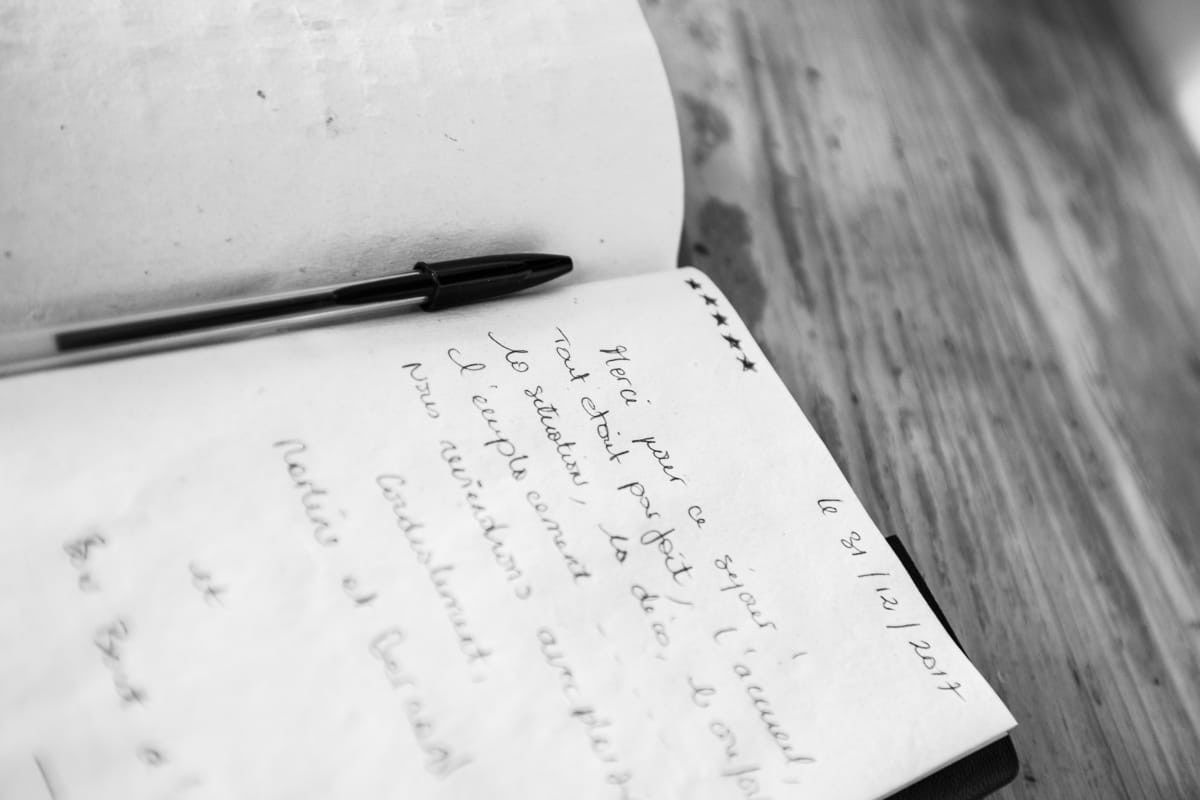 le 31/12/2017
★★★★★
Merci pour ce séjour !
Tout était parfait, l'accueil,
la situation, la déco, le
l'emplacement
Nous reviendrons avec
Cordialement,
Martine et
et